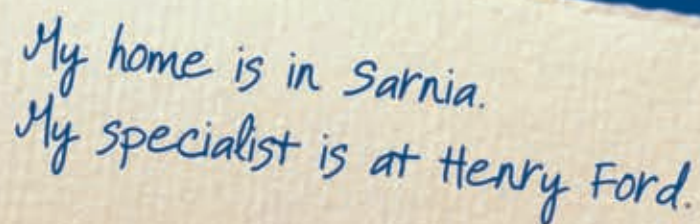 My home is in Sarnia.
My specialist is at Henry Ford.